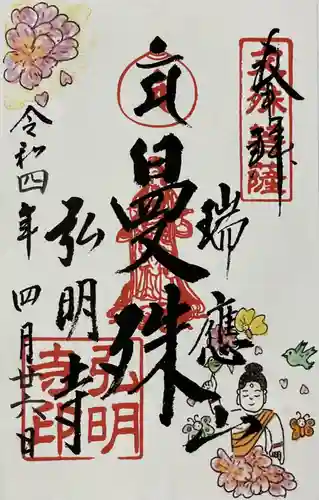 奉拝
瑞應山
曼殊
弘明寺
令和四年
四月廿六日
弘明寺印